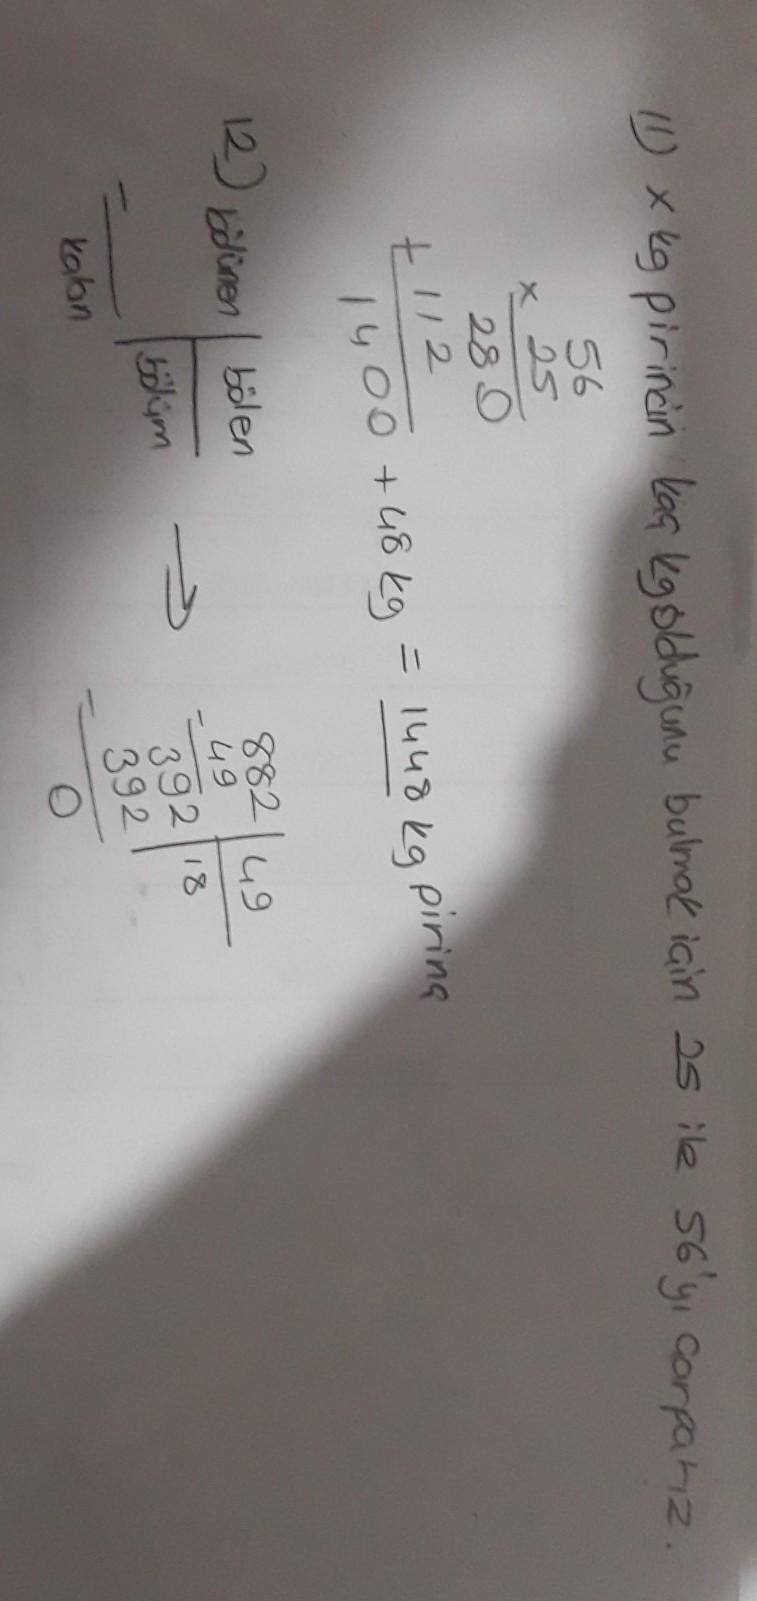 11) x kg pirincin kaç kg olduğunu bulmak için 25 ile 56'yı çarparız.
56
x 25
280
+ 112
1400 + 48 kg = 1448 kg pirinç
12) bölünen | bölen
bölüm
-
kalan
→
882 | 49
- 49 18
392
- 392
0